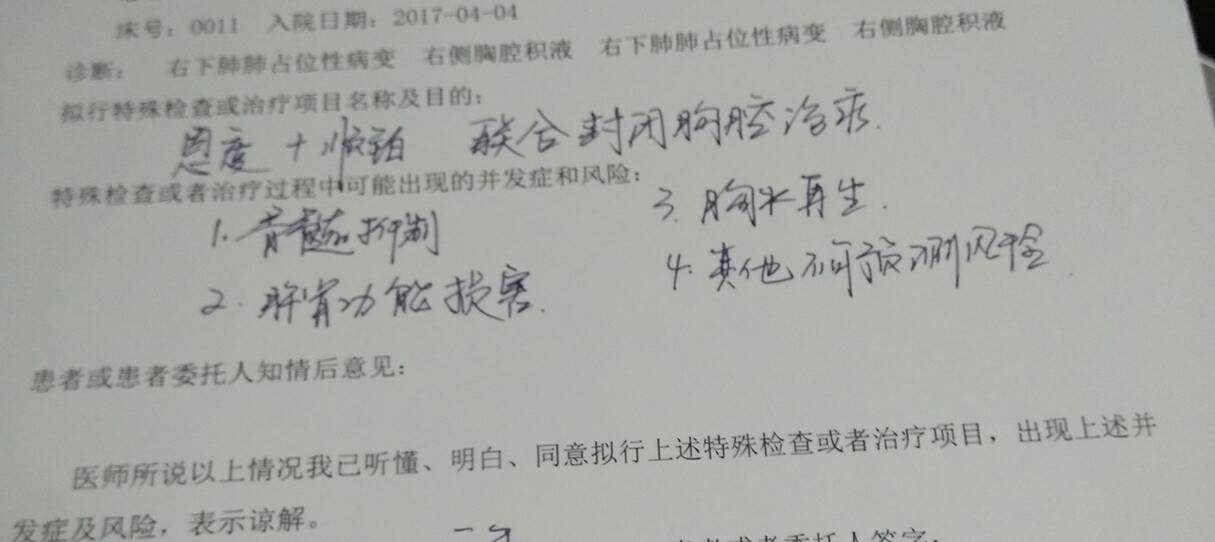 床号：0011 入院日期：2017-04-04
诊断： 右下肺肺占位性病变 右侧胸腔积液 右下肺肺占位性病变 右侧胸腔积液
拟行特殊检查或治疗项目名称及目的：
恩度 + 顺铂 联合封闭胸腔治疗.
特殊检查或者治疗过程中可能出现的并发症和风险：
1. 骨髓抑制
2. 肝肾功能损害.
3. 胸水再生.
4. 其他不可预测风险.
患者或患者委托人知情后意见：
医师所说以上情况我已听懂、明白、同意拟行上述特殊检查或者治疗项目，出现上述并
发症及风险，表示谅解。
患者或者委托人签字：